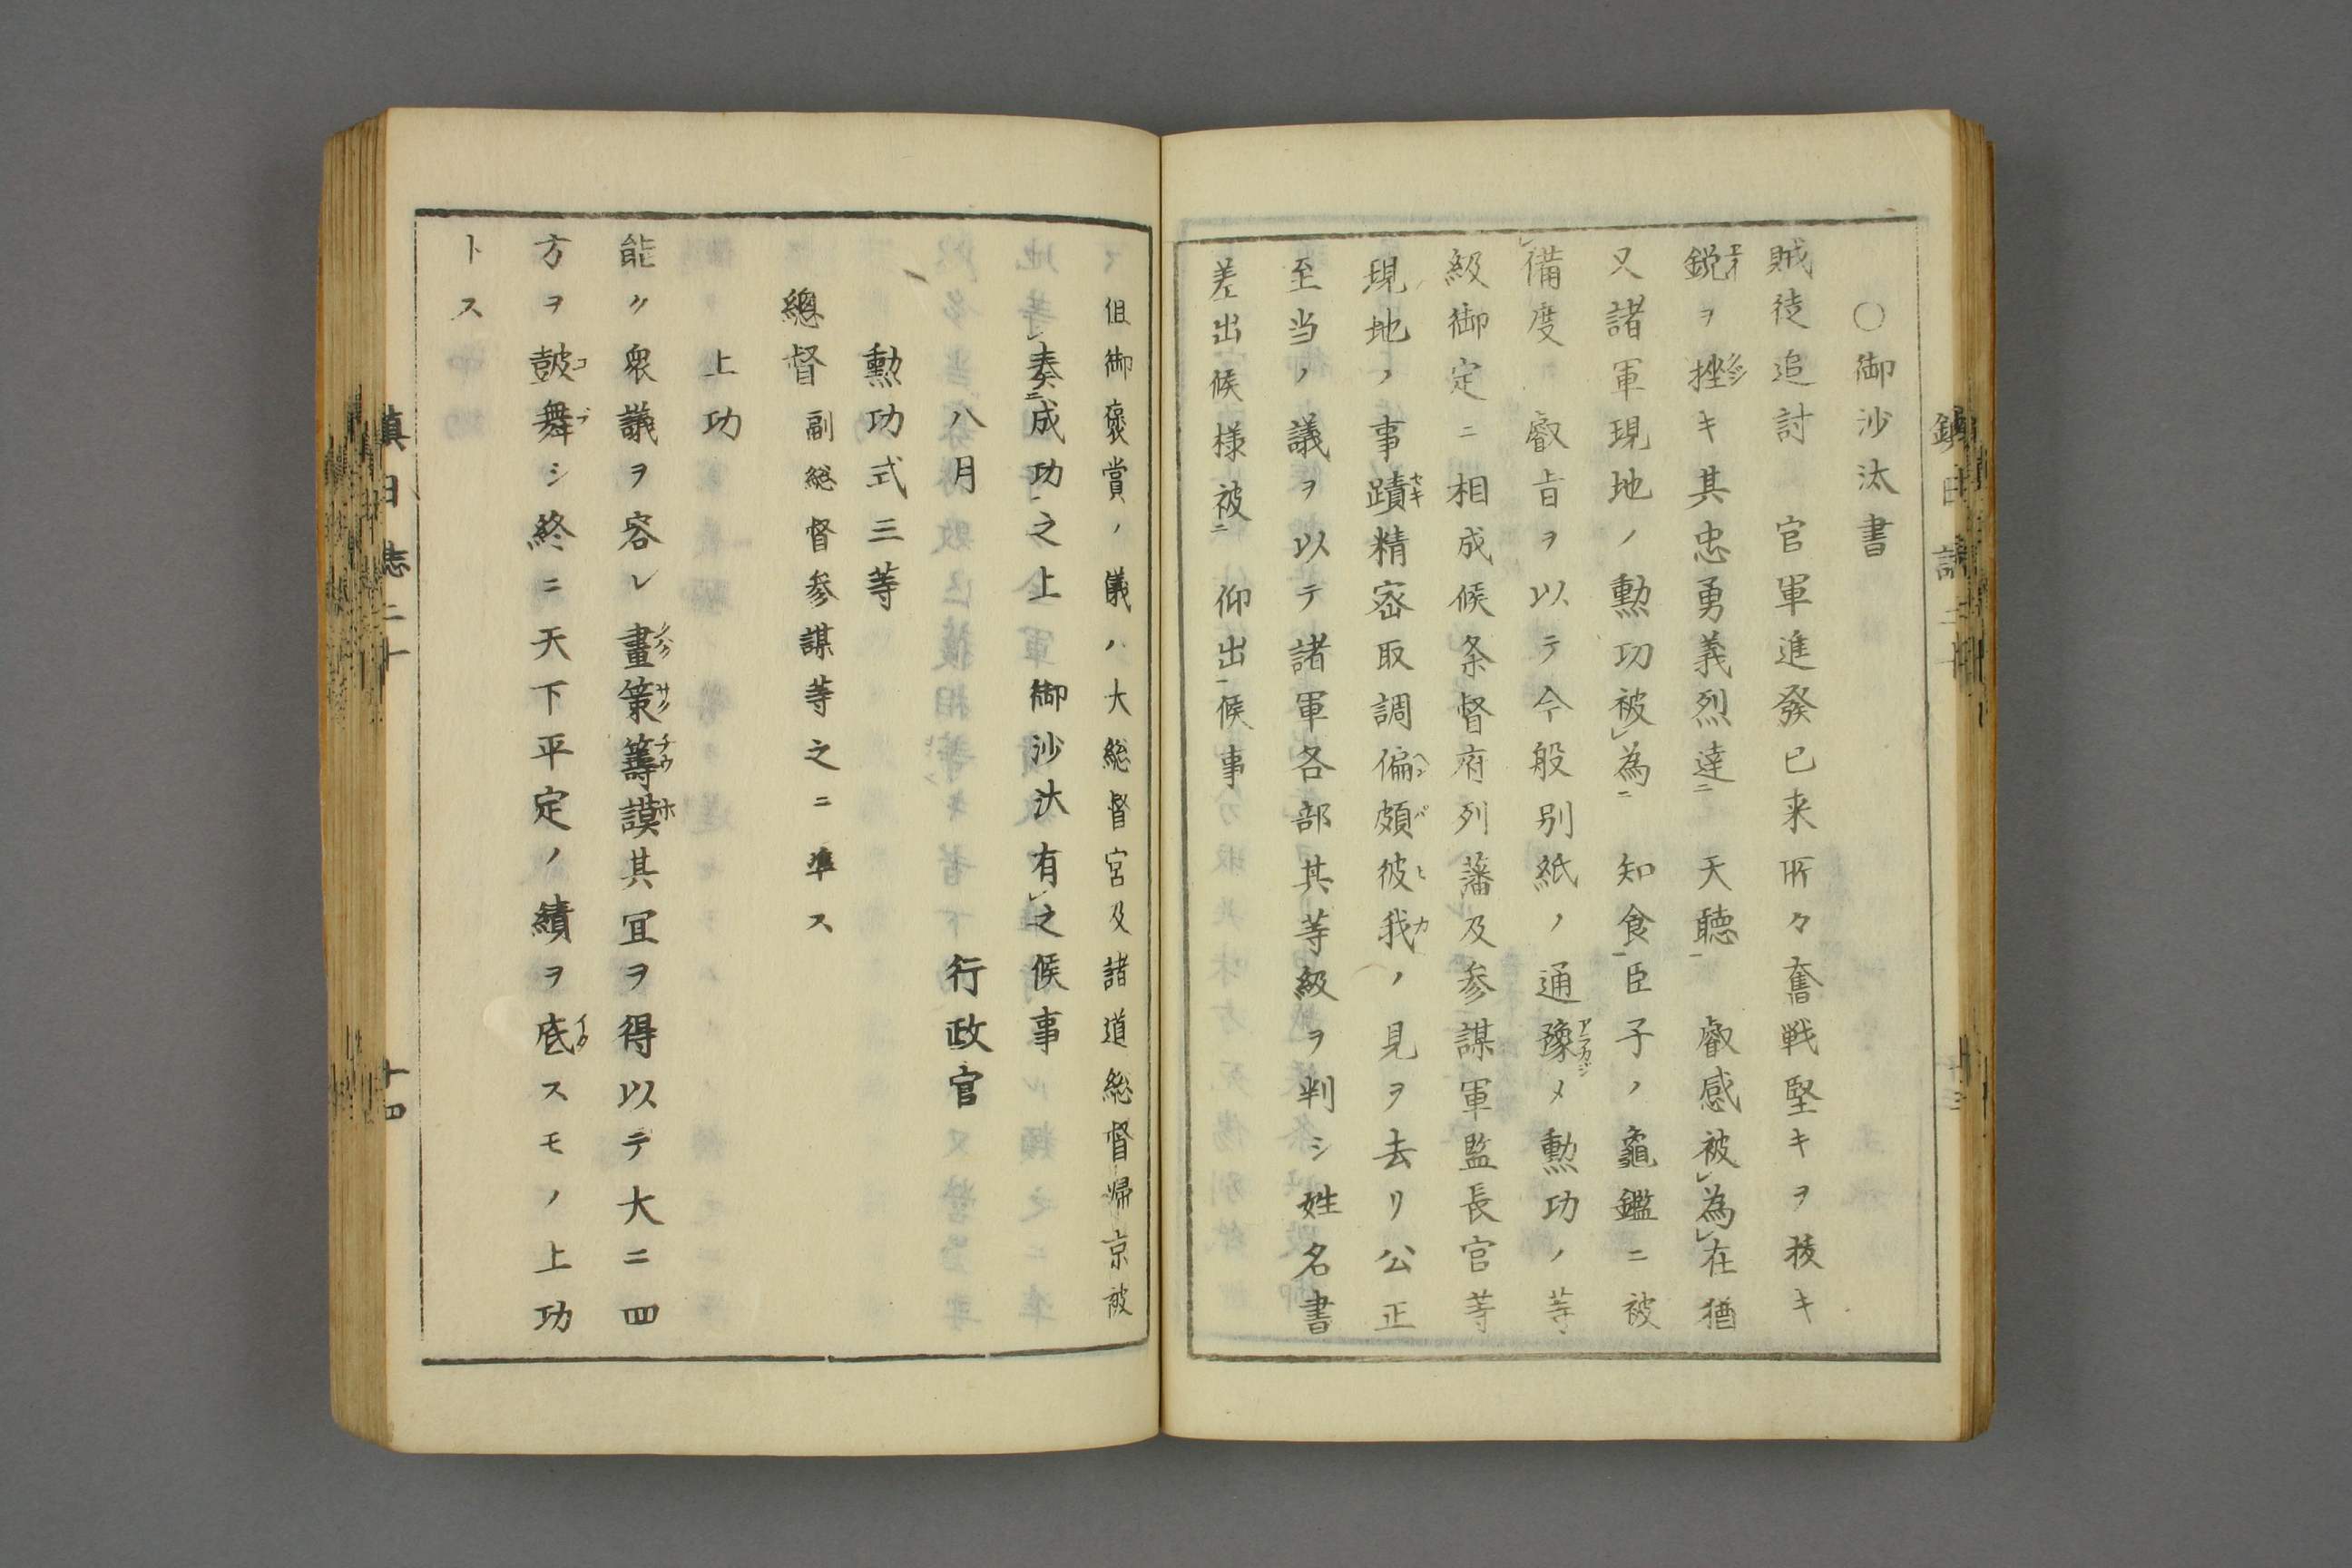 ○御沙汰書
賊徒追討　官軍進發已来所々奮戦堅キヲ抜キ
鋭ヲ挫キ其忠勇義烈達ニ　天聴一　叡感被レ為レ在猶
又諸軍現地ノ勲功被レ為ニ　知食一臣子ノ龜鑑ニ被
レ備度　叡旨ヲ以テ今般别紙ノ通豫メ勲功ノ等
級御定ニ相成候条督府列藩及参謀軍監長官等
現地ノ事蹟精密取調偏頗彼我ノ見ヲ去リ公正
至当ノ議ヲ以テ諸軍各部其等級ヲ判シ姓名書
差出候様被ニ　仰出一候事
但御褒賞ノ儀ハ大総督宮及諸道総督帰京被
レ奏ニ成功一之上御沙汰有レ之候事
八月　行政官
勲功式三等
總督　副総督参謀等之ニ準ス
上功
能ク衆議ヲ容レ畫策籌謨其冝ヲ得以テ大ニ四
方ヲ皷舞シ終ニ天下平定ノ績ヲ底スモノ上功
トス
鎮日誌二十
十三
鎮日志二十
十四